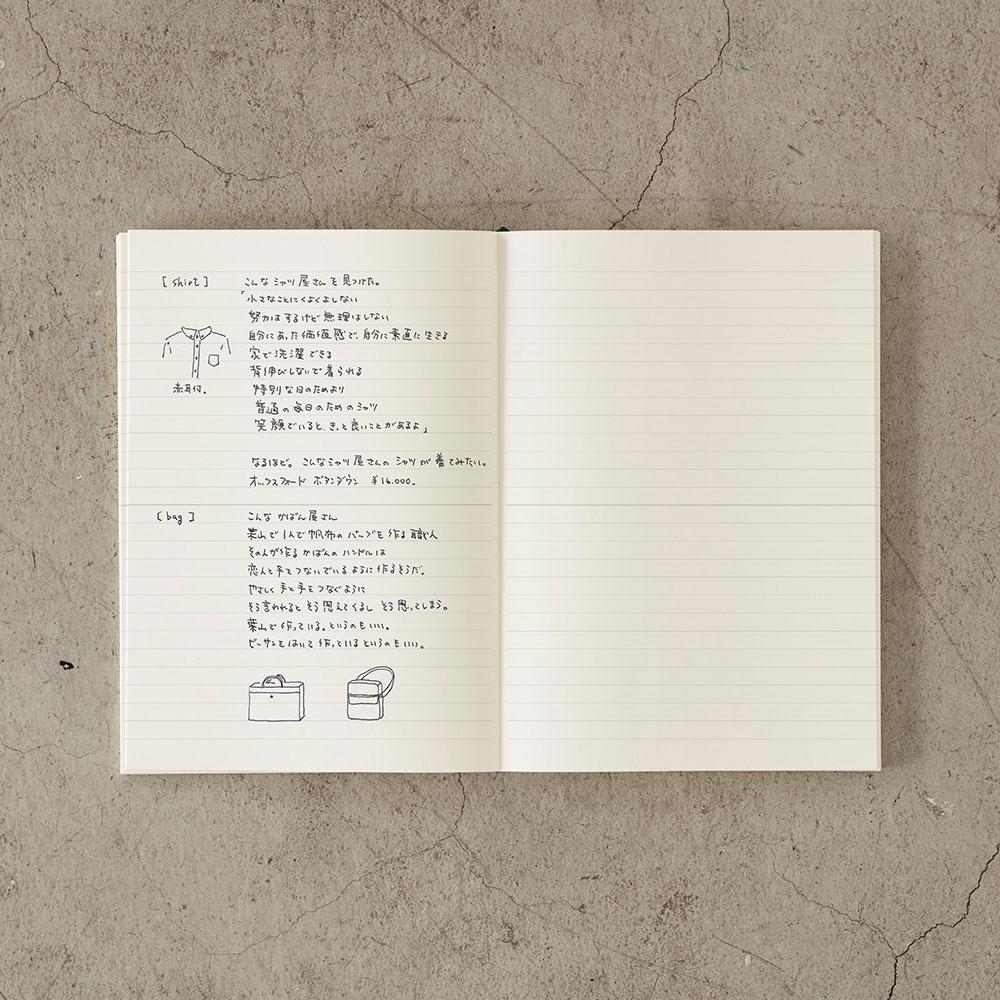 [shirt] こんなシャツ屋さんを見つけた。
「小さなことにくよくよしない
努力はするけど無理はしない
自分にあった価値感で、自分に素直に生きる
家で洗濯できる
背伸びしないで着られる
赤耳付。 特別な日のためより
普通の毎日のためのシャツ
笑顔でいると、きっと良いことがあるよ」
なるほど。こんなシャツ屋さんのシャツが着てみたい。
オックスフォード ボタンダウン ¥16.000.
[bag] こんなかばん屋さん
葉山で1人で帆布のバッグを作る職人
その人が作るかばんのハンドルは
恋人と手をつないでいるように作るそうだ。
やさしく手と手をつなぐように
そう言われるとそう思えてくるし そう思ってしまう。
葉山で作っている。というのもいい。
ビーサンをはいて作っているというのもいい。